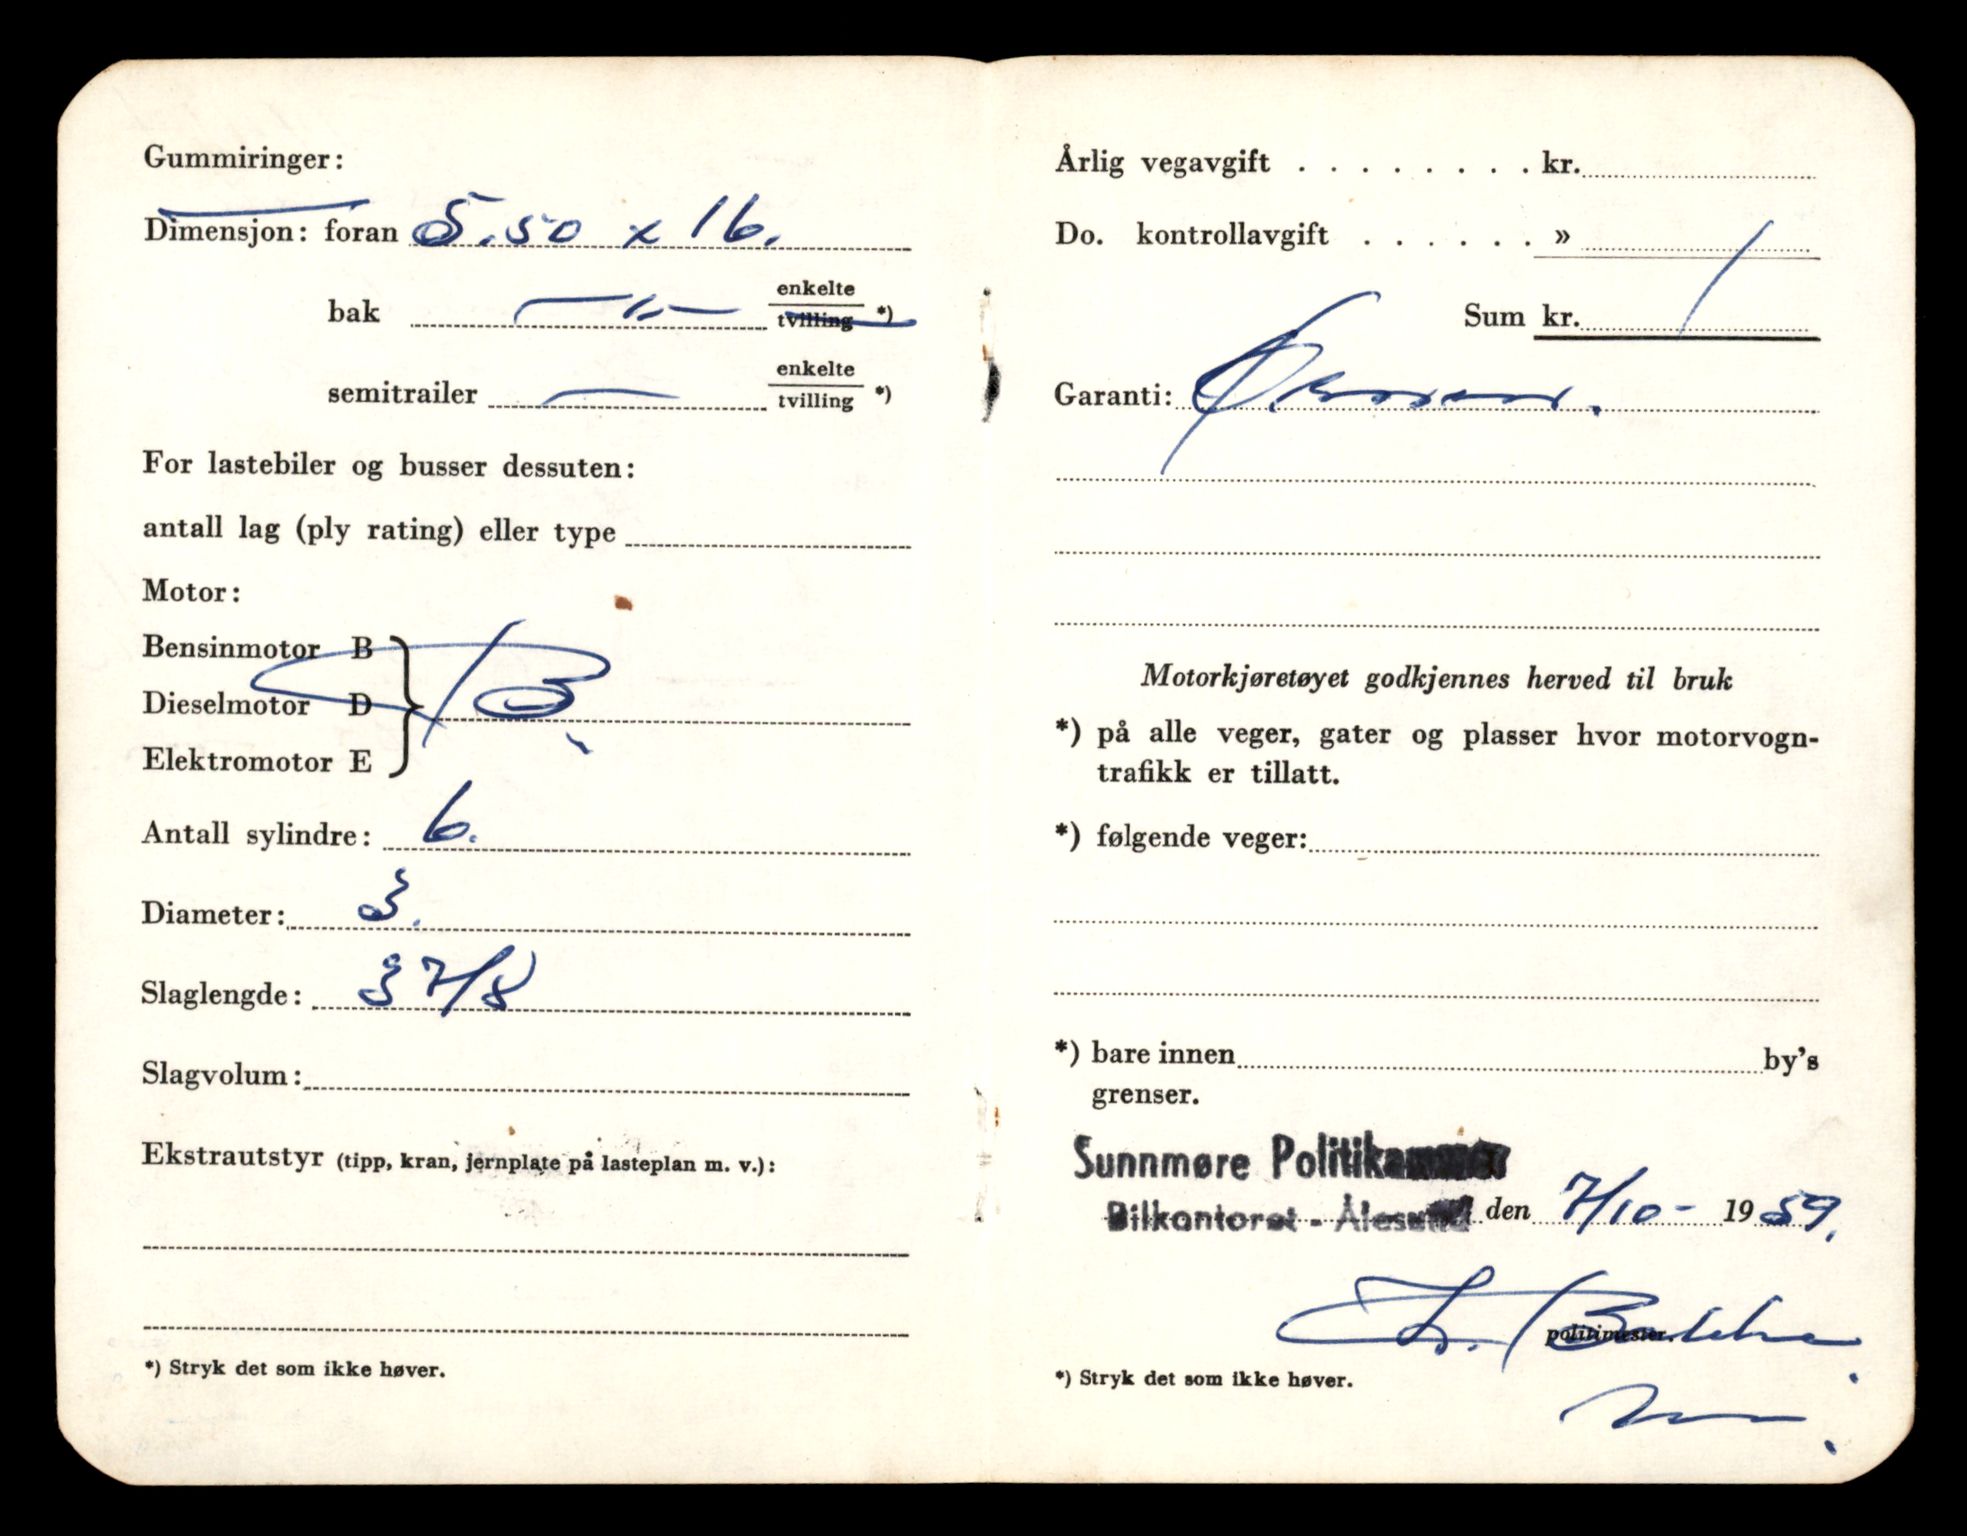 Gummiringer:
Dimensjon: foran 5.50 x 16.
bak — " — enkelte
tvilling *)
semitrailer — enkelte
tvilling *)
For lastebiler og busser dessuten:
antall lag (ply rating) eller type
Motor:
Bensinmotor B
Dieselmotor D } B.
Elektromotor E
Antall sylindre: 6.
Diameter: 3.
Slaglengde: 3 7/8
Slagvolum:
Ekstrautstyr (tipp, kran, jernplate på lasteplan m. v.):
*) Stryk det som ikke høver.
Årlig vegavgift . . . . . . . . kr.
Do. kontrollavgift . . . . . . »
Sum kr.
Garanti:
Motorkjøretøyet godkjennes herved til bruk
*) på alle veger, gater og plasser hvor motorvogn-
trafikk er tillatt.
*) følgende veger:
*) bare innen by's
grenser.
Sunnmøre Politikammer
Bilkontoret - Ålesund den 7/10- 1959.
politimester.
*) Stryk det som ikke høver.